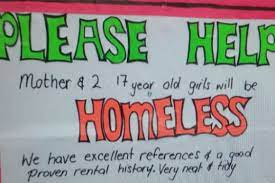 PLEASE HELP
Mother & 2 17 year old girls will be
HOMELESS
We have excellent references & a good
proven rental history. Very neat & tidy